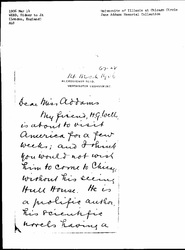 University of Illinois at Chicago Circle
Jane Addams Memorial Collection
Dear Miss Addams
My friend, H.G. Wells,
is about to visit
America for a few
weeks; and I think
you would not wish
him to come to Chicago
without his seeing
Hull House. He is
a prolific author,
his scientific
novels having a